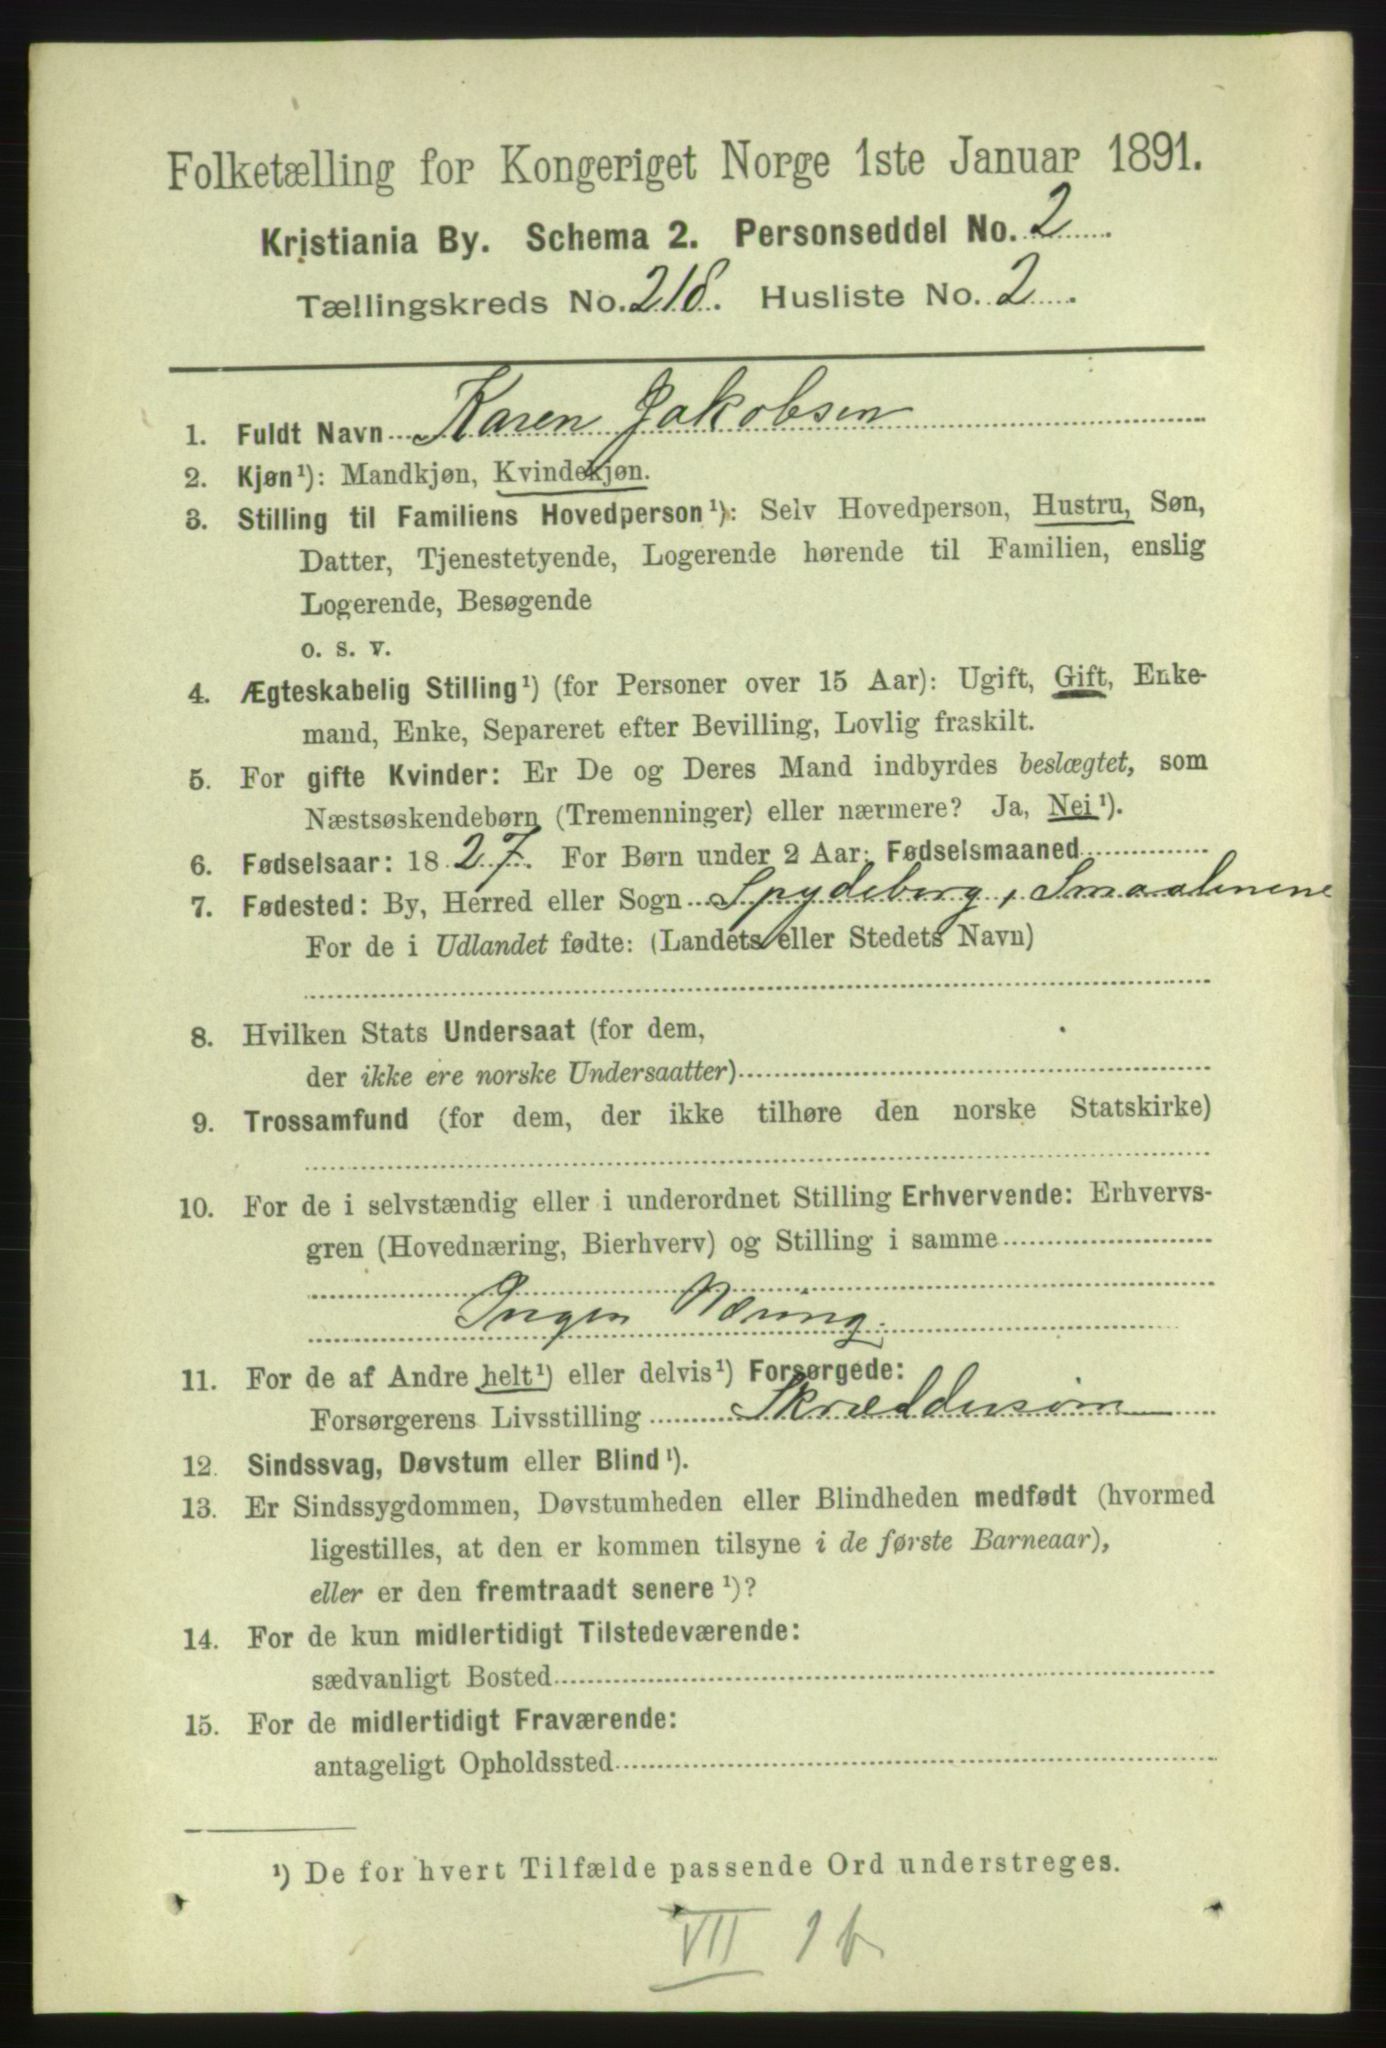 Folketælling for Kongeriget Norge 1ste Januar 1891.
Kristiania By. Schema 2. Personseddel No. 2
Tællingskreds No. 218. Husliste No. 2
1. Fuldt Navn Karen Jakobsen
2. Kjøn¹): Mandkjøn, Kvindekjøn.
3. Stilling til Familiens Hovedperson¹): Selv Hovedperson, Hustru, Søn,
Datter, Tjenestetyende, Logerende hørende til Familien, enslig
Logerende, Besøgende
o. s. v.
4. Ægteskabelig Stilling¹) (for Personer over 15 Aar): Ugift, Gift, Enke-
mand, Enke, Separeret efter Bevilling, Lovlig fraskilt.
5. For gifte Kvinder: Er De og Deres Mand indbyrdes beslægtet, som
Næstsøskendebørn (Tremenninger) eller nærmere? Ja, Nei¹).
6. Fødselsaar: 18 27. For Børn under 2 Aar: Fødselsmaaned
7. Fødested: By, Herred eller Sogn Spydeberg, Smaalenene
For de i Udlandet fødte: (Landets eller Stedets Navn)
8. Hvilken Stats Undersaat (for dem,
der ikke ere norske Undersaatter)
9. Trossamfund (for dem, der ikke tilhøre den norske Statskirke)
10. For de i selvstændig eller i underordnet Stilling Erhvervende: Erhvervs-
gren (Hovednæring, Bierhverv) og Stilling i samme
Ingen Næring.
11. For de af Andre helt¹) eller delvis¹) Forsørgede:
Forsørgerens Livsstilling Skræddersøm
12. Sindssvag, Døvstum eller Blind¹).
13. Er Sindssygdommen, Døvstumheden eller Blindheden medfødt (hvormed
ligestilles, at den er kommen tilsyne i de første Barneaar),
eller er den fremtraadt senere¹)?
14. For de kun midlertidigt Tilstedeværende:
sædvanligt Bosted
15. For de midlertidigt Fraværende:
antageligt Opholdssted
¹) De for hvert Tilfælde passende Ord understreges.
VII 1 b